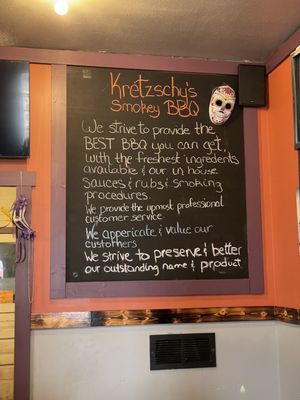 Kretzschy's
Smokey BBQ
We strive to provide the
BEST BBQ you can get,
with the freshest ingredients
available & our in house
Sauces & rubs & smoking
procedures.
We provide the upmost professional
customer service
We appericate & value our
customers
We strive to preserve & better
our outstanding name & product